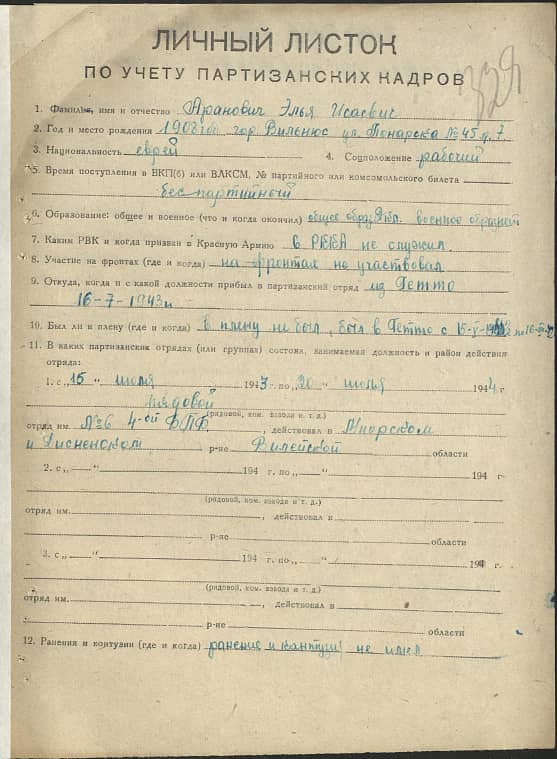 ЛИЧНЫЙ ЛИСТОК
ПО УЧЕТУ ПАРТИЗАНСКИХ КАДРОВ
1. Фамилия, имя и отчество Аранович Элья Исаевич
2. Год и место рождения 1908 гор. Вильнюс ул. Понарска № 45 д. 7
3. Национальность еврей 4. Соцположение рабочий
5. Время поступления в ВКП(б) или ВЛКСМ, № партийного или комсомольского билета
беспартийный
6. Образование: общее и военное (что и когда окончил) общее военное
7. Каким РВК и когда призван в Красную Армию в РККА не служил
8. Участие на фронтах (где и когда) на фронтах не участвовал
9. Откуда, когда и с какой должности прибыл в партизанский отряд из Гетто
16-7-1943
10. Был ли в плену (где и когда) в плену не был, был в Гетто с
11. В каких партизанских отрядах (или группах) состоял, занимаемая должность и район действия
отряда:
1. с „15“ июля 1943 г. по „20“ июля 1944 г.
рядовой
(рядовой, ком. взвода и т. д.)
отряд им. №6 4-ой , действовал в
и Дисненском р-не Вилейской области
2. с „ “ 194 г. по „ “ 194 г.
(рядовой, ком. взвода и т. д.)
отряд им. , действовал в
р-не области
3. с „ “ 194 г. по „ “ 194 г.
(рядовой, ком. взвода и т. д.)
отряд им. , действовал в
р-не области
12. Ранения и контузии (где и когда) ранение и контузий не имел